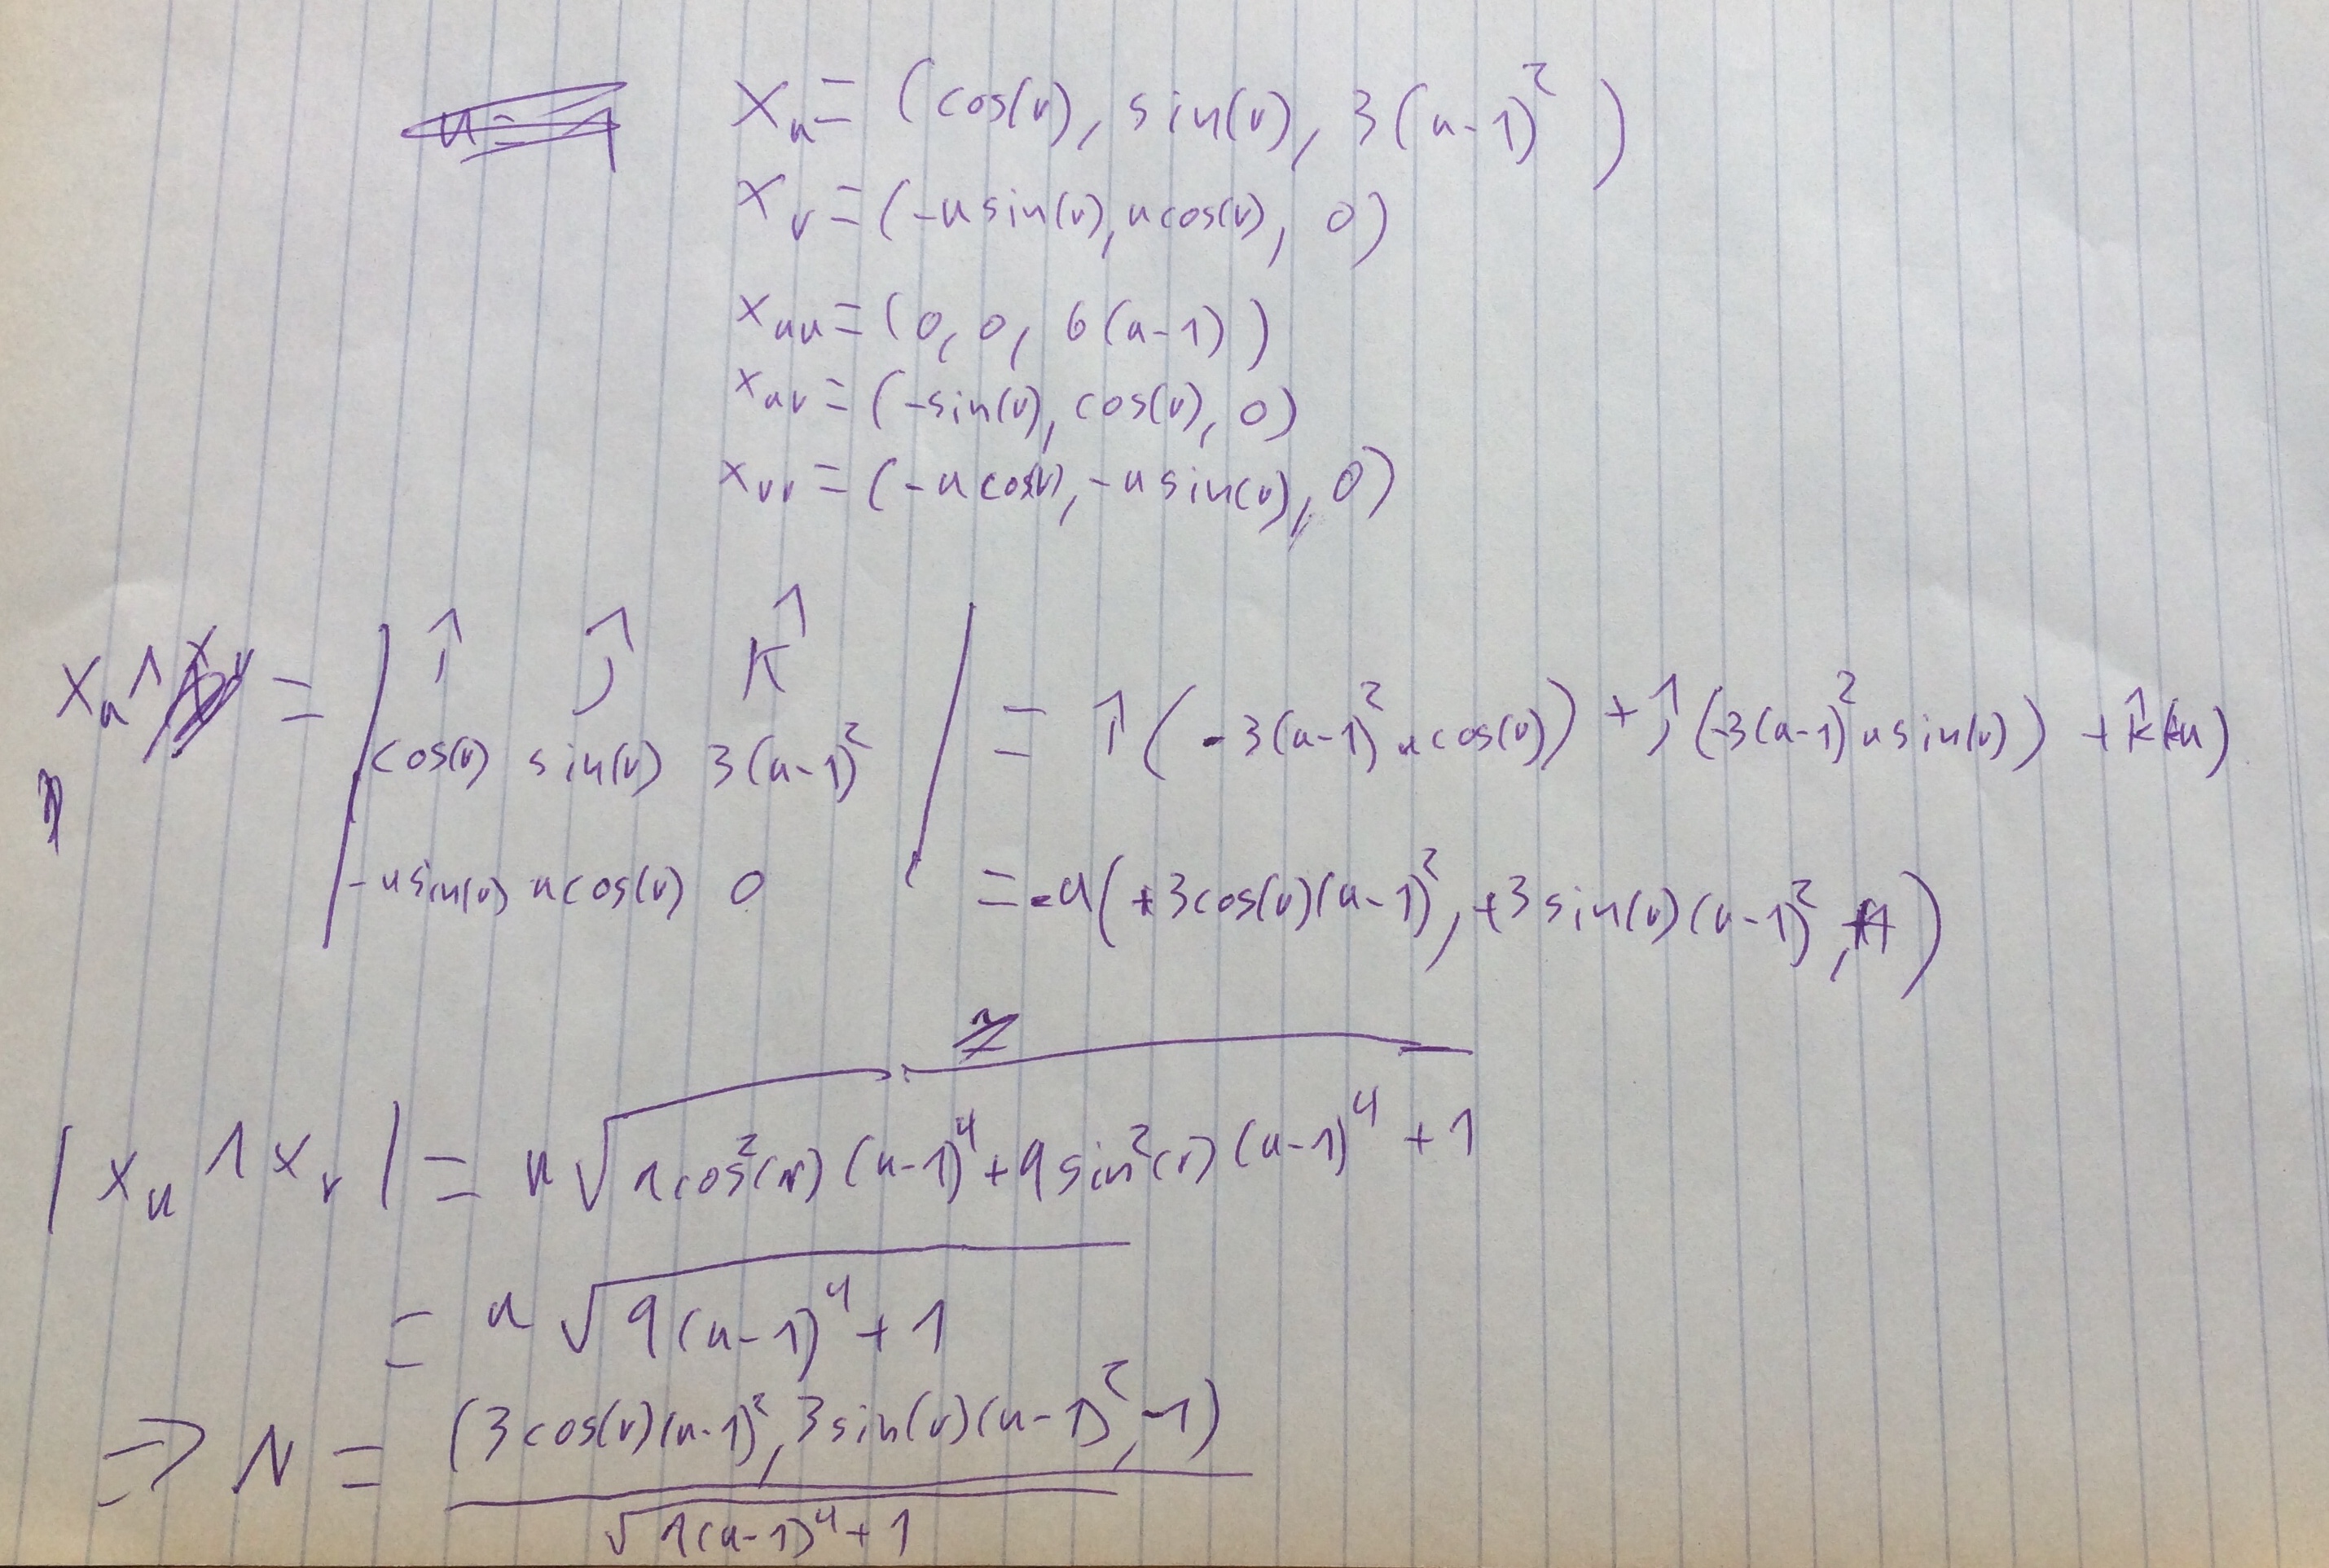 x_u = (cos(v), sin(v), 3(u-1)^2)
x_v = (-u sin(v), u cos(v), 0)
x_uu = (0, 0, 6(u-1))
x_uv = (-sin(v), cos(v), 0)
x_vv = (-u cos(v), -u sin(v), 0)
x_u ∧ x_v = | î ĵ k̂ | = î(-3(u-1)^2 u cos(v)) + ĵ(-3(u-1)^2 u sin(v)) + k̂(u)
cos(v) sin(v) 3(u-1)^2
-u sin(v) u cos(v) 0 = -u(+3cos(v)(u-1)^2, +3sin(v)(u-1)^2, -1)
|x_u ∧ x_v| = u √(9cos^2(v)(u-1)^4 + 9sin^2(v)(u-1)^4 + 1)
= u √(9(u-1)^4 + 1)
⇒ N = (3cos(v)(u-1)^2, 3sin(v)(u-1)^2, -1)
√(9(u-1)^4 + 1)